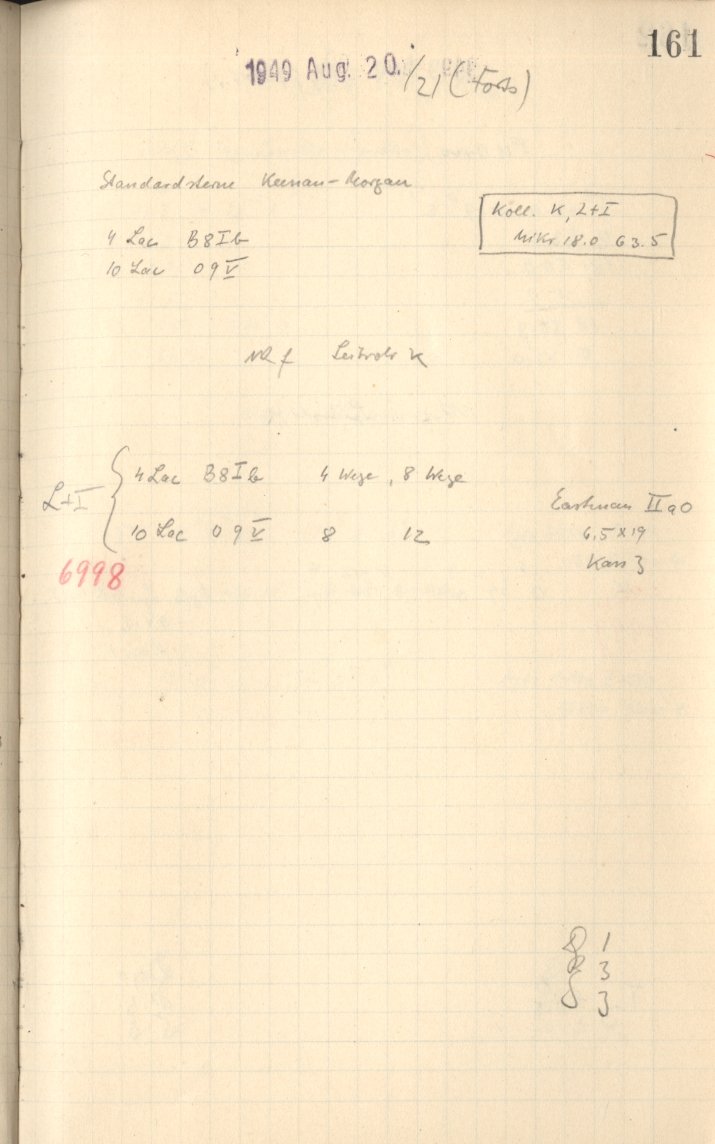 161
1949 Aug. 20./21 (Forts)
Standardsterne Keenan-Morgan
Koll. K, L+I
Mikr. 18.0 G 3.5
4 Lac B8Ib
10 Lac O9V
f Leitrohr K
L+I
4 Lac B8Ib 4 Wege, 8 Wege
10 Lac O9V 8 12
Eastman IIaO
6,5x19
Kass 3
6998
1
3
3